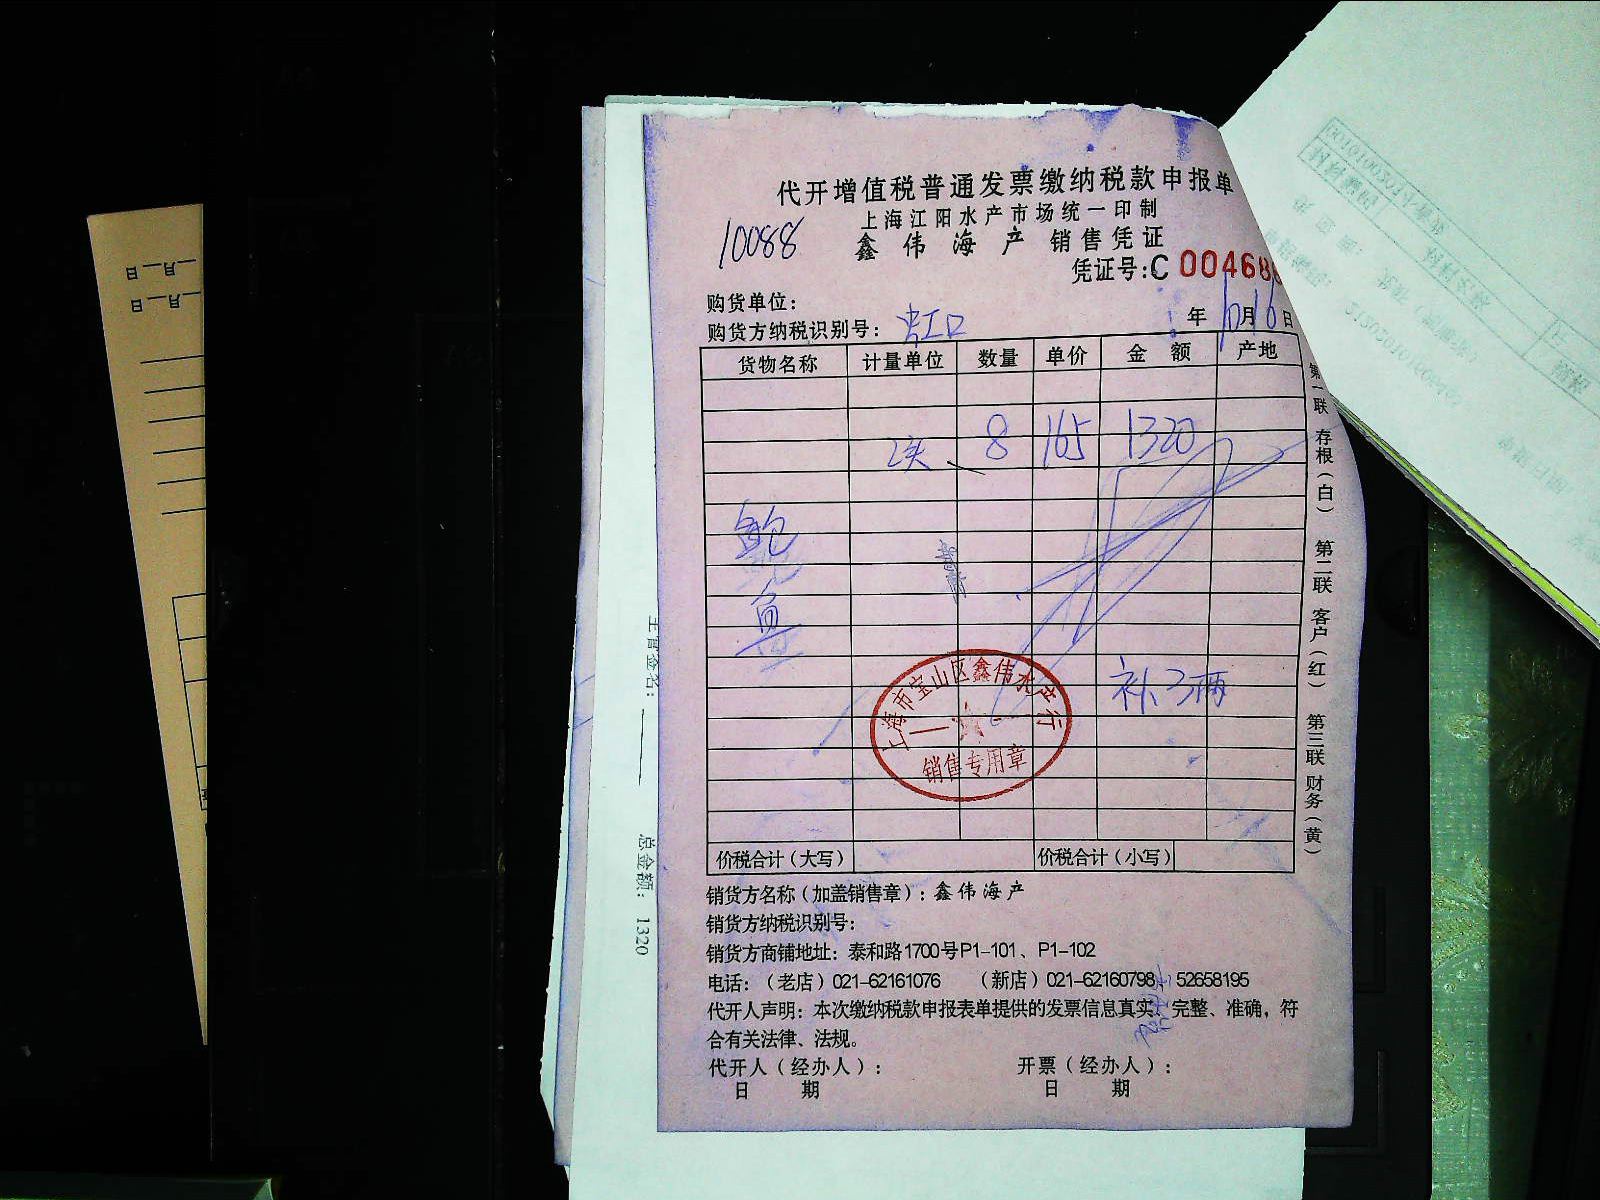 代开增值税普通发票缴纳税款申报单
上海江阳水产市场统一印制
10088
鑫伟海产销售凭证
凭证号:C 00468
购货单位:
购货方纳税识别号: 虹口
年10月16日
货物名称 计量单位 数量 单价 金额 产地
2头 8 165 1320
鲍
鱼
补3两
上海市宝山区鑫伟水产行
销售专用章
价税合计(大写) 价税合计(小写)
销货方名称(加盖销售章):鑫伟海产
销货方纳税识别号:
销货方商铺地址:泰和路1700号P1-101、P1-102
电话:(老店)021-62161076 (新店)021-62160798 52658195
代开人声明:本次缴纳税款申报表单提供的发票信息真实、完整、准确,符
合有关法律、法规。
代开人(经办人): 开票(经办人):
日期 日期
第一联 存根(白) 第二联 客户(红) 第三联 财务(黄)
主管签名:
总金额: 1320
月 日
月 日